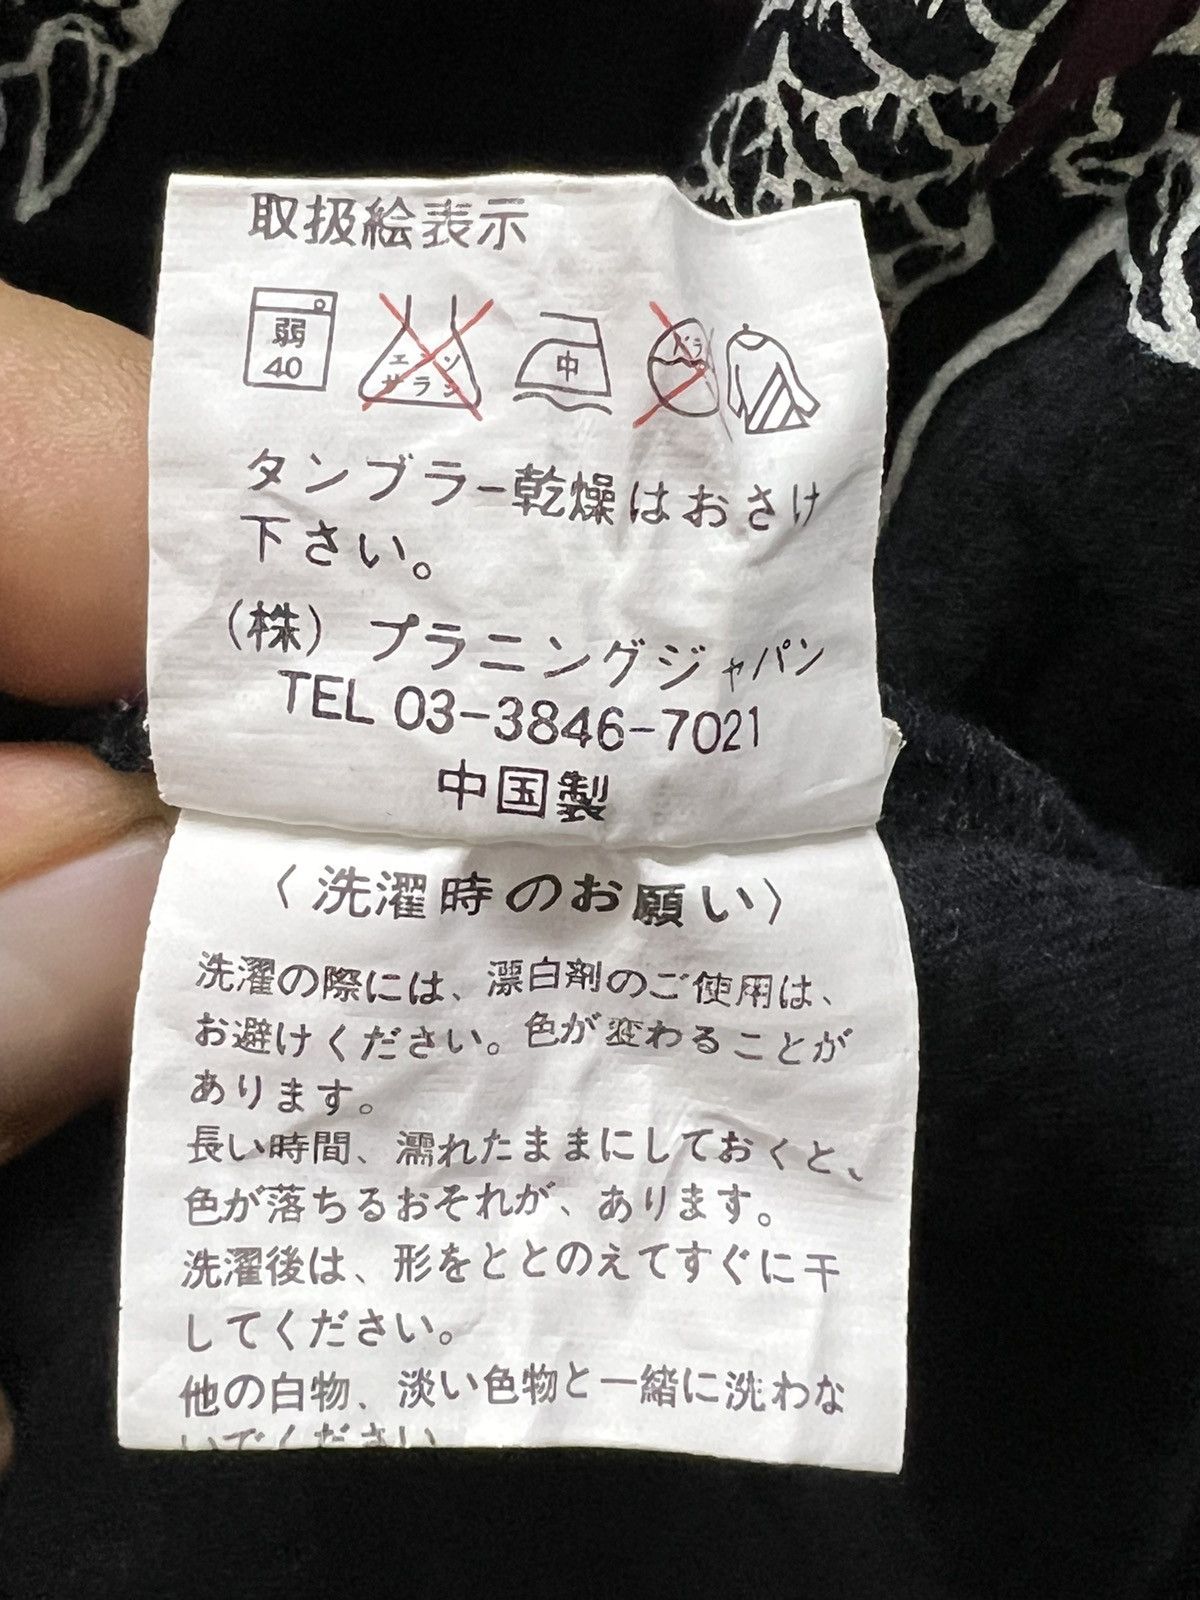 取扱絵表示
弱 40
エンソ
サラシ
中
ドラ
タンブラー乾燥はおさけ
下さい。
(株) プラニングジャパン
TEL 03-3846-7021
中国製
〈洗濯時のお願い〉
洗濯の際には、漂白剤のご使用は、
お避けください。色が変わることが
あります。
長い時間、濡れたままにしておくと、
色が落ちるおそれが、あります。
洗濯後は、形をととのえてすぐに干
してください。
他の白物、淡い色物と一緒に洗わな
いでください